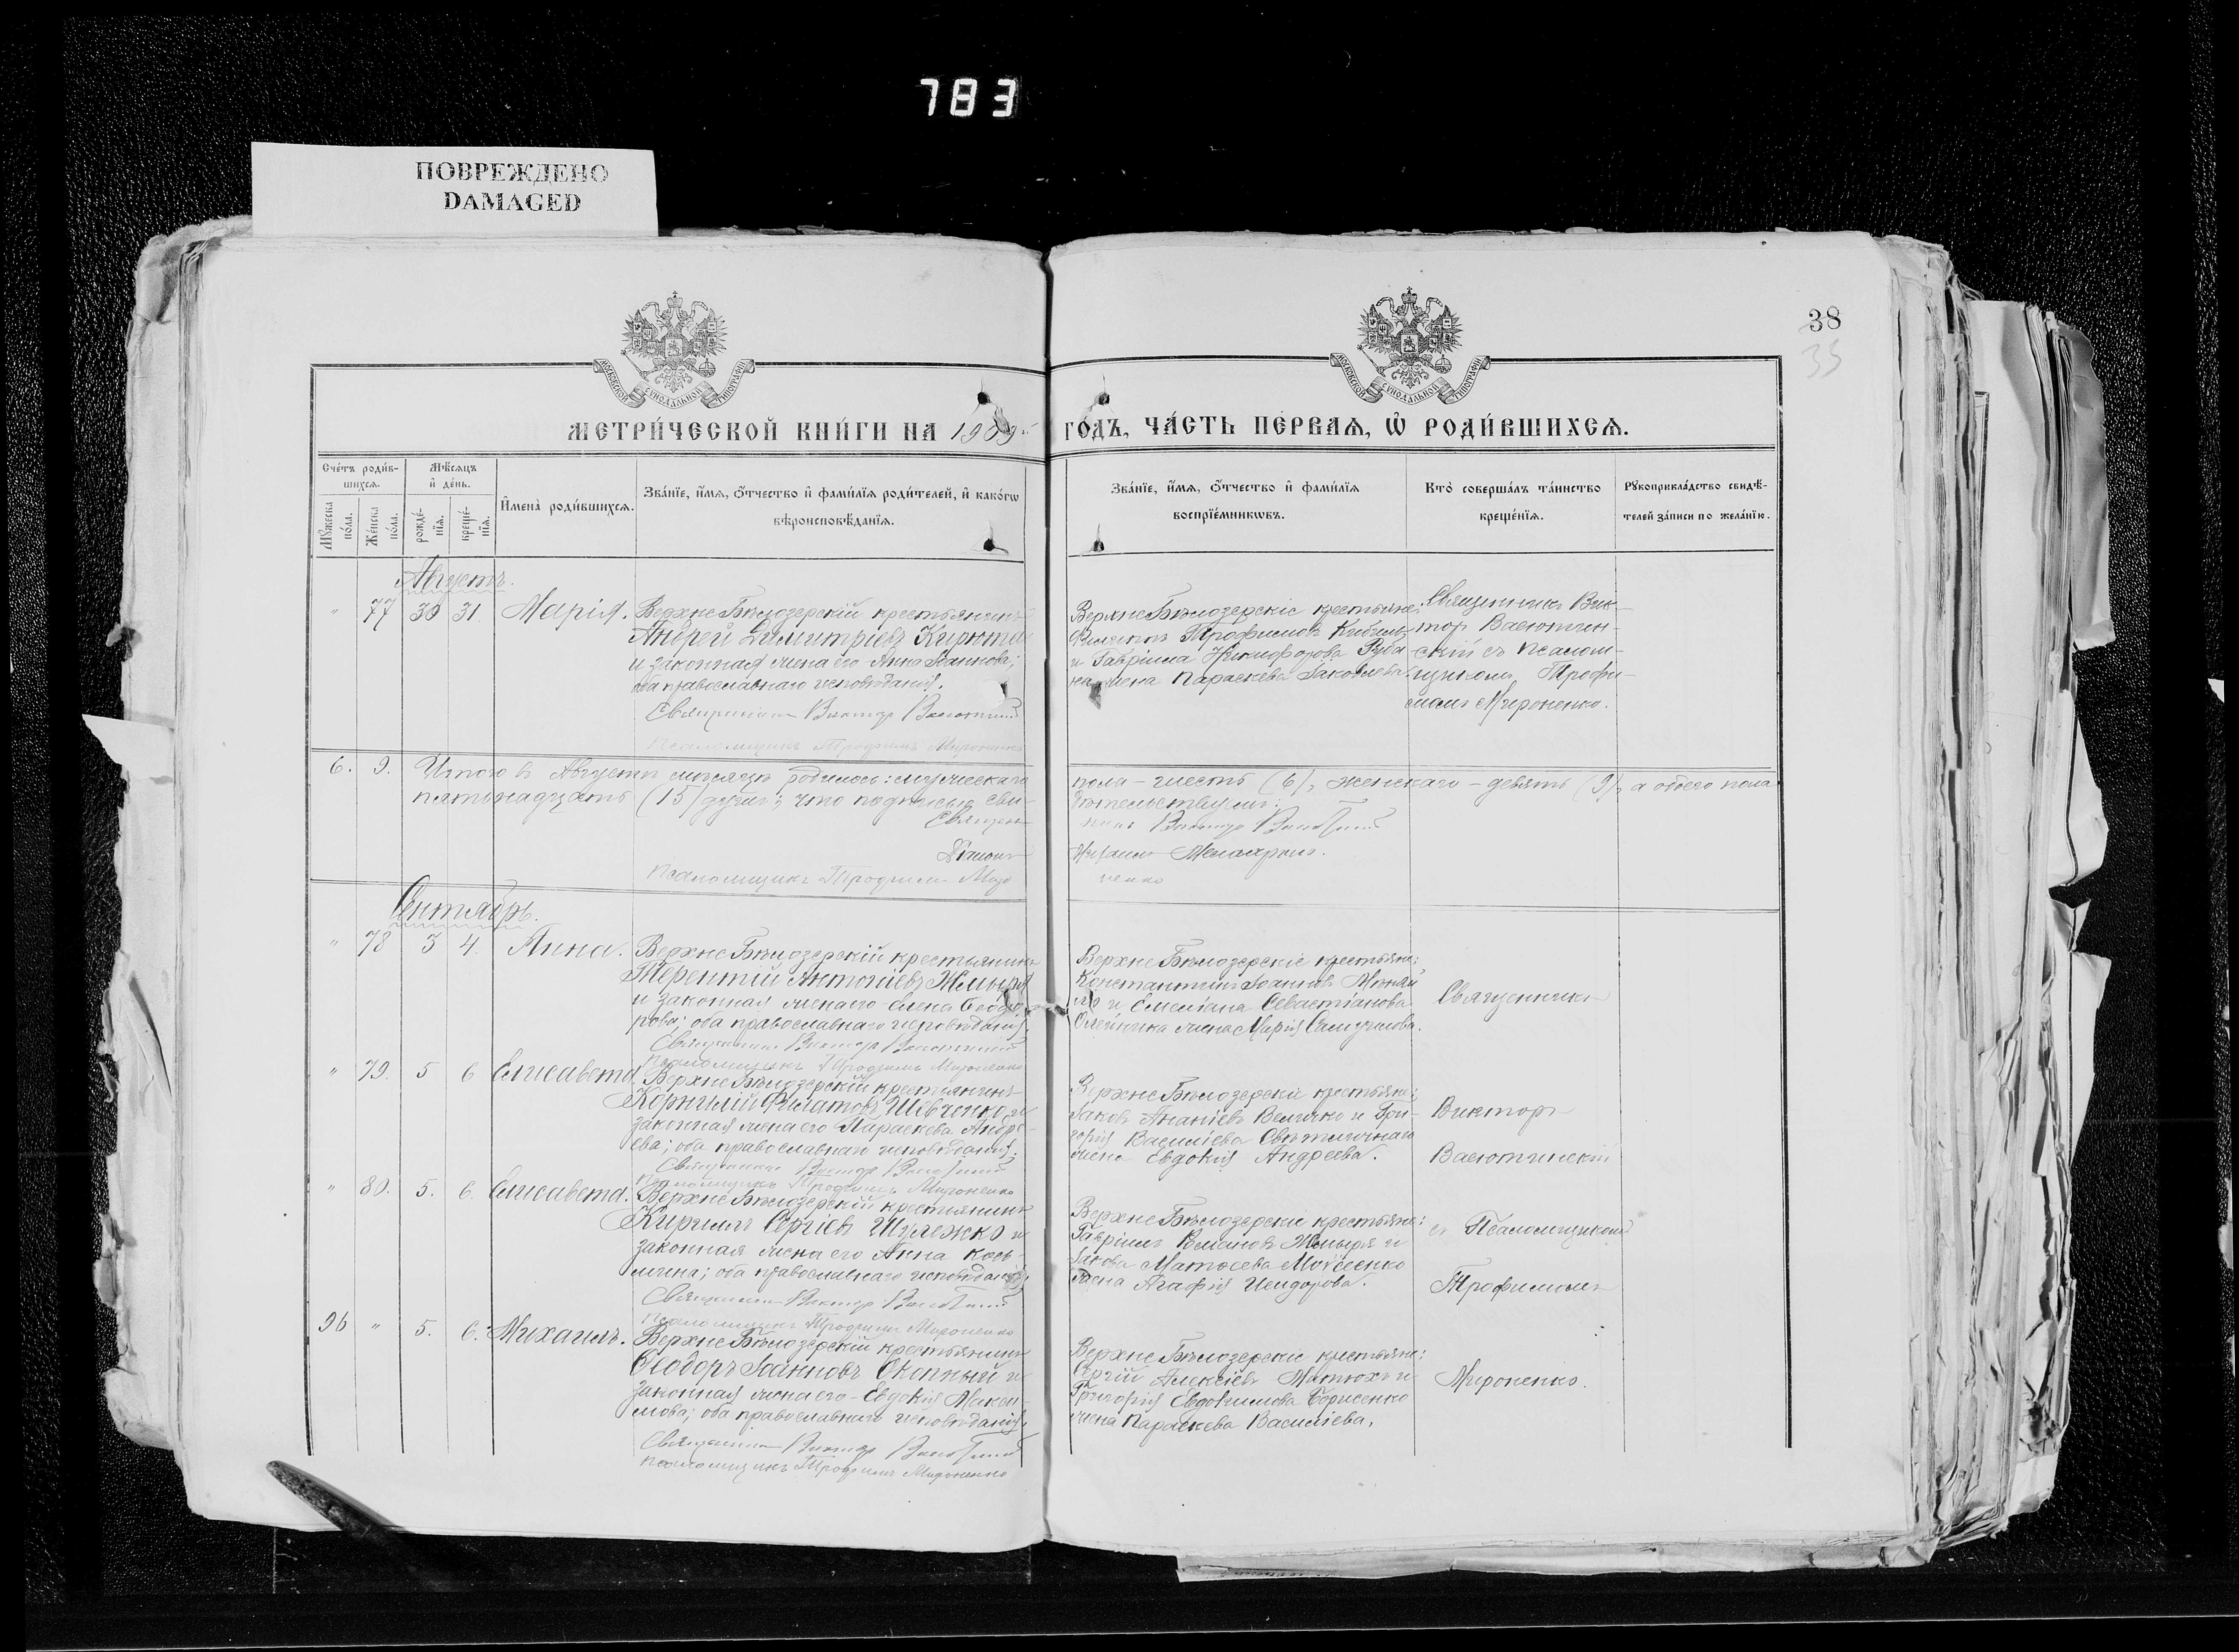 783
ПОВРЕЖДЕНО
DAMAGED
38
35
МОСКОВСКОЙ СѴНОДАЛЬНОЙ ТИПОГРАФІИ
МОСКОВСКОЙ СѴНОДАЛЬНОЙ ТИПОГРАФІИ
МЕТРИ́ЧЕСКОЙ КНИ́ГИ НА 1909 ГО́ДЪ, ЧА́СТЬ ПЕ́РВАѦ, Ѡ҆ РОДИ́ВШИХСѦ.
Сче́тъ роди́в-
шихсѧ.
Мꙋ́жеска по́ла.
Же́нска по́ла.
Мѣ́сѧцъ
и҆ де́нь.
рожде́-
нїѧ.
креще́-
нїѧ.
И҆мена̀ роди́вшихсѧ.
Зва́нїе, и҆́мѧ, ѻ҆́тчество и҆ фами́лїѧ роди́телей, и҆ како́гѡ
вѣроисповѣ́данїѧ.
Зва́нїе, и҆́мѧ, ѻ҆́тчество и҆ фами́лїѧ
воспрїе́мникѡвъ.
Кто̀ соверша́лъ та́инство
креще́нїѧ.
Рꙋкоприкла́дство свидѣ́-
телей за́писи по жела́нїю.
Августъ.
" 77 30 31 Марія.
Верхне Бѣлозерскій крестьянинъ
Андрей Димитріевъ
и законная жена его Анна Іоаннова;
оба православнаго исповѣданія.
Священникъ Викторъ Васютинскій
Псаломщикъ Трофимъ Мироненко
Верхне Бѣлозерскіе крестьяне:
Трофимовъ
и Гавріила Никифорова
жена Параскева Іаковлева.
Священникъ Вик-
торъ Васютин-
скій съ псалом-
щикомъ Трофи-
момъ Мироненко.
6. 9. Итого въ Августѣ мѣсяцѣ родилось: мужескаго пола - шесть (6), женскаго - девять (9), а обоего пола
пятьнадцать (15) душъ; что подписью сви- дѣтельствуемъ:
Священ- никъ Викторъ Васютинскій
Діаконъ
Псаломщикъ Трофимъ Миро- ненко
Сентябрь.
" 78 3 4. Анна.
Верхне Бѣлозерскій крестьянинъ
Терентій Антоніевъ Жмыря
и законная жена его Елена Ѳеодо-
рова; оба православнаго исповѣданія.
Священникъ Викторъ Васютинскій
Псаломщикъ Трофимъ Мироненко
Верхне Бѣлозерскіе крестьяне:
Константинъ Іоанновъ
и Емеліана Севастіанова
Олейника жена Марія Самуилова.
Священникъ
" 79. 5 6 Елисавета.
Верхне Бѣлозерскій крестьянинъ
Корнилій Филатовъ Шевченко и
законная жена его Параскева Андре-
ева; оба православнаго исповѣданія.
Священникъ Викторъ Васютинскій
Псаломщикъ Трофимъ Мироненко
Верхне Бѣлозерскіе крестьяне:
Іаковъ Ананіевъ Величко и Гри-
горія Василіева Свѣтличнаго
жена Евдокія Андреева.
Викторъ
Васютинскій
" 80. 5. 6. Елисавета.
Верхне Бѣлозерскій крестьянинъ
Кириллъ Сергіевъ Шулежко и
законная жена его Анна Кось-
мина; оба православнаго исповѣданія.
Священникъ Викторъ Васютинскій
Псаломщикъ Трофимъ Мироненко
Верхне Бѣлозерскіе крестьяне:
Гавріилъ Романовъ Жмыря и
Іакова Матѳеева Моѵсеенко
жена Агафія Исидорова.
съ Псаломщикомъ
Трофимомъ
96 " 5. 6. Михаилъ.
Верхне Бѣлозерскій крестьянинъ
Ѳеодоръ Іоанновъ Скопный и
законная жена его - Евдокія Макси-
мова; оба православнаго исповѣданія.
Священникъ Викторъ Васютинскій
Псаломщикъ Трофимъ Мироненко
Верхне Бѣлозерскіе крестьяне:
Сергій Алексіевъ Матюхъ и
Григорія Евдокимова Борисенко
жена Параскева Василіева.
Мироненко.